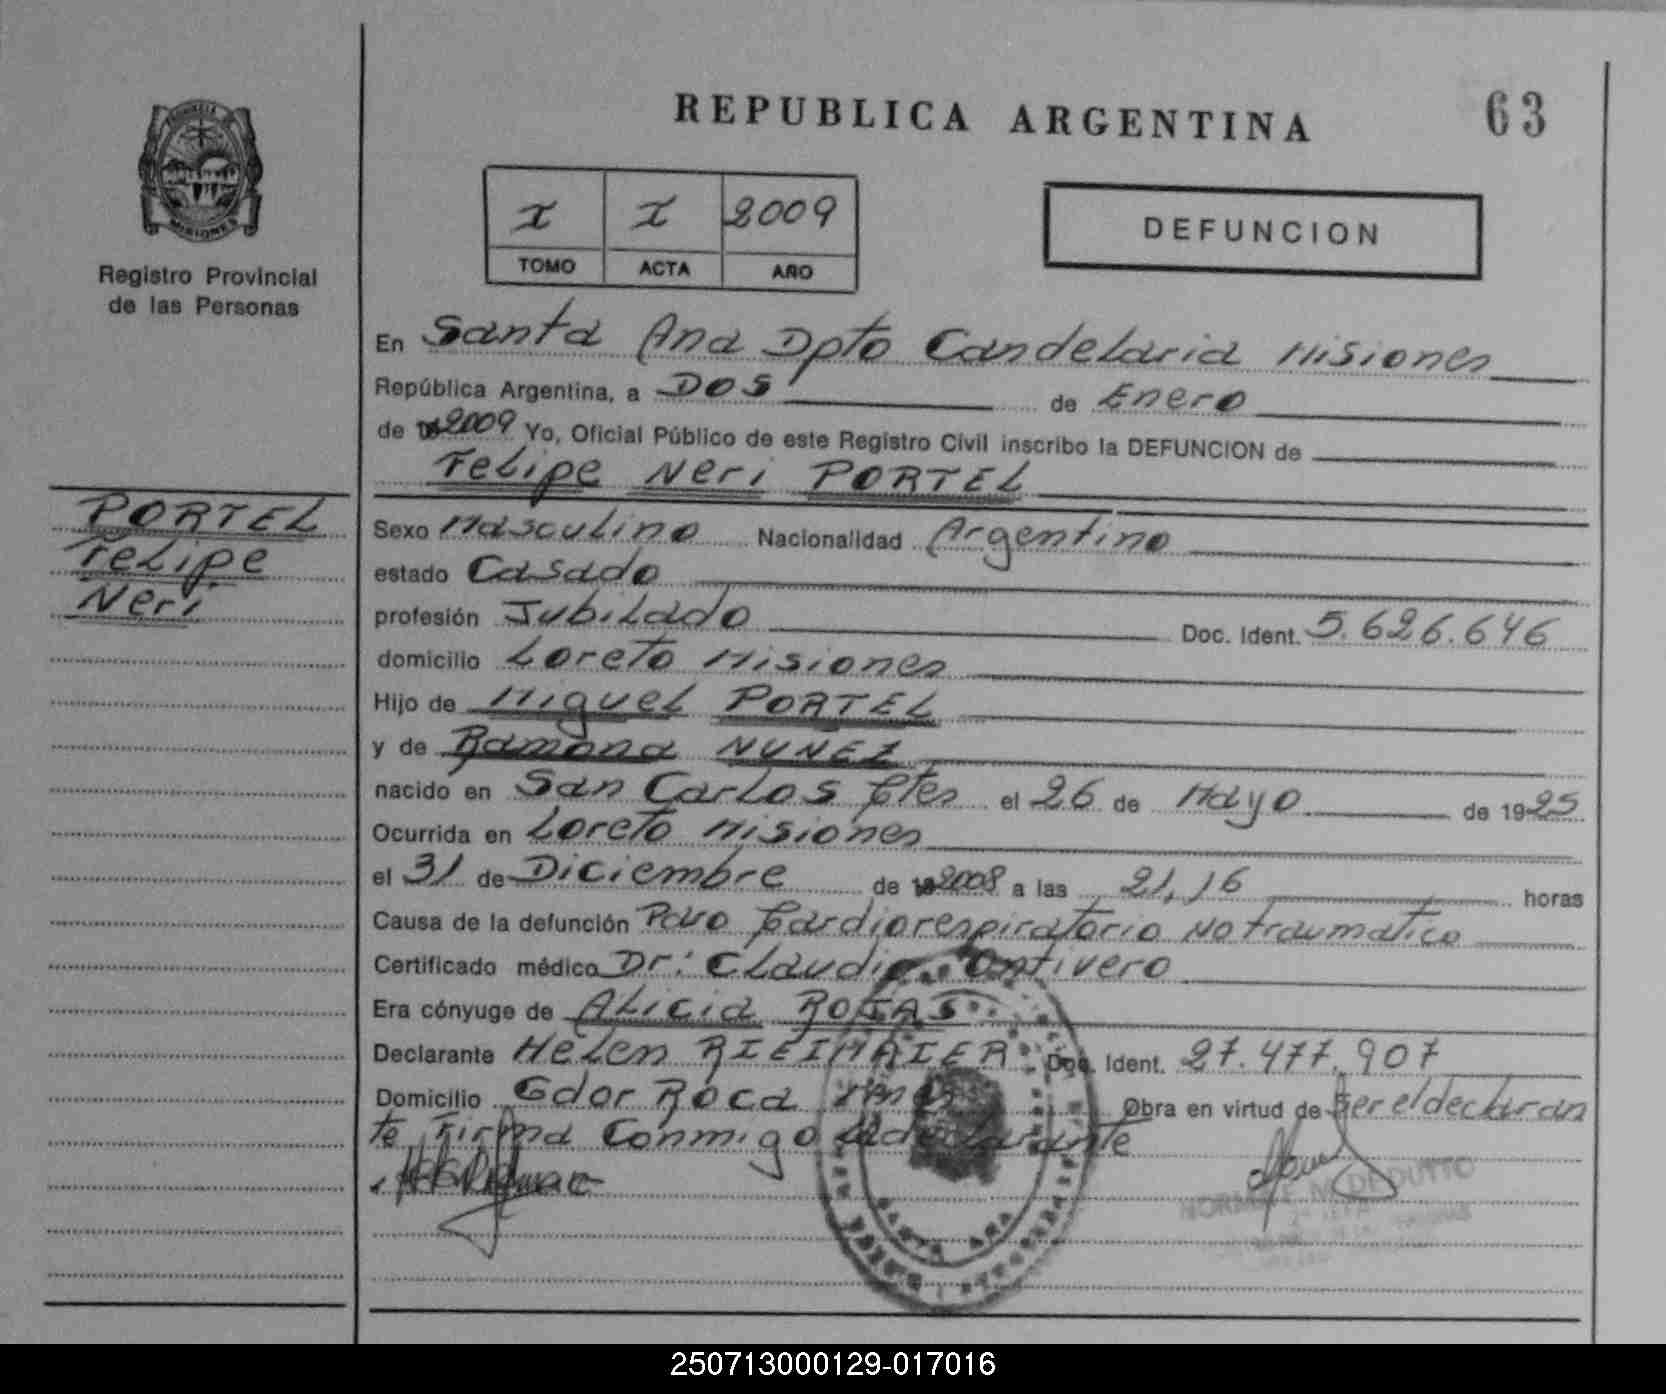 REPUBLICA ARGENTINA
63
PROVINCIA DE
MISIONES
Registro Provincial
de las Personas
I I 2009
TOMO ACTA AÑO
DEFUNCION
En Santa Ana Dpto Candelaria Misiones
República Argentina, a DOS de Enero
de 2009 Yo, Oficial Público de este Registro Civil inscribo la DEFUNCION de
Felipe Neri PORTEL
PORTEL
Felipe
Neri
Sexo Masculino Nacionalidad Argentino
estado Casado
profesión Jubilado Doc. Ident. 5.626.646
domicilio Loreto Misiones
Hijo de Miguel PORTEL
y de Ramona NUNEZ
nacido en San Carlos Ctes el 26 de Mayo de 1925
Ocurrida en Loreto Misiones
el 31 de Diciembre de 2008 a las 21,16 horas
Causa de la defunción Paro Cardiorespiratorio No traumatico
Certificado médico Dr: Claudio Ontivero
Era cónyuge de Alicia ROJAS
Declarante Helen RIEIMAIER Doc. Ident. 27.477.907
Domicilio Gdor Roca Mnes Obra en virtud de Ser el declaran
te, Firma Conmigo la declarante
SANTA ANA
250713000129-017016